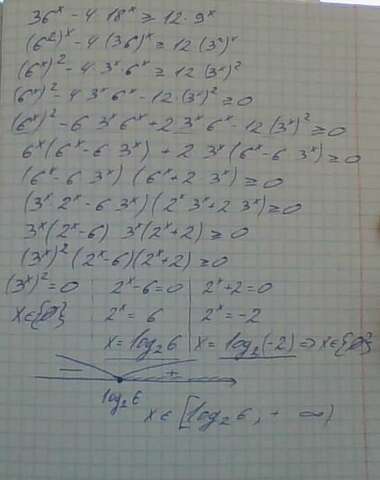 36ˣ - 4·18ˣ ≥ 12·9ˣ
(6²)ˣ - 4(36)ˣ ≥ 12(3²)ˣ
(6ˣ)² - 4·3ˣ·6ˣ ≥ 12(3ˣ)²
(6ˣ)² - 4·3ˣ6ˣ - 12·(3ˣ)² ≥ 0
(6ˣ)² - 6 3ˣ6ˣ + 2 3ˣ6ˣ - 12(3ˣ)² ≥ 0
6ˣ(6ˣ - 6 3ˣ) + 2 3ˣ(6ˣ - 6 3ˣ) ≥ 0
(6ˣ - 6 3ˣ) (6ˣ + 2 3ˣ) ≥ 0
(3ˣ·2ˣ - 6·3ˣ)(2ˣ3ˣ + 2·3ˣ) ≥ 0
3ˣ(2ˣ - 6) 3ˣ(2ˣ + 2) ≥ 0
(3ˣ)²(2ˣ - 6)(2ˣ + 2) ≥ 0
(3ˣ)² = 0 | 2ˣ - 6 = 0 | 2ˣ + 2 = 0
x ∈ {∅} | 2ˣ = 6 | 2ˣ = -2
x = log₂6 | x = log₂(-2) ⇒ x ∈ {∅}
- +
log₂6
x ∈ [log₂6, + ∞)